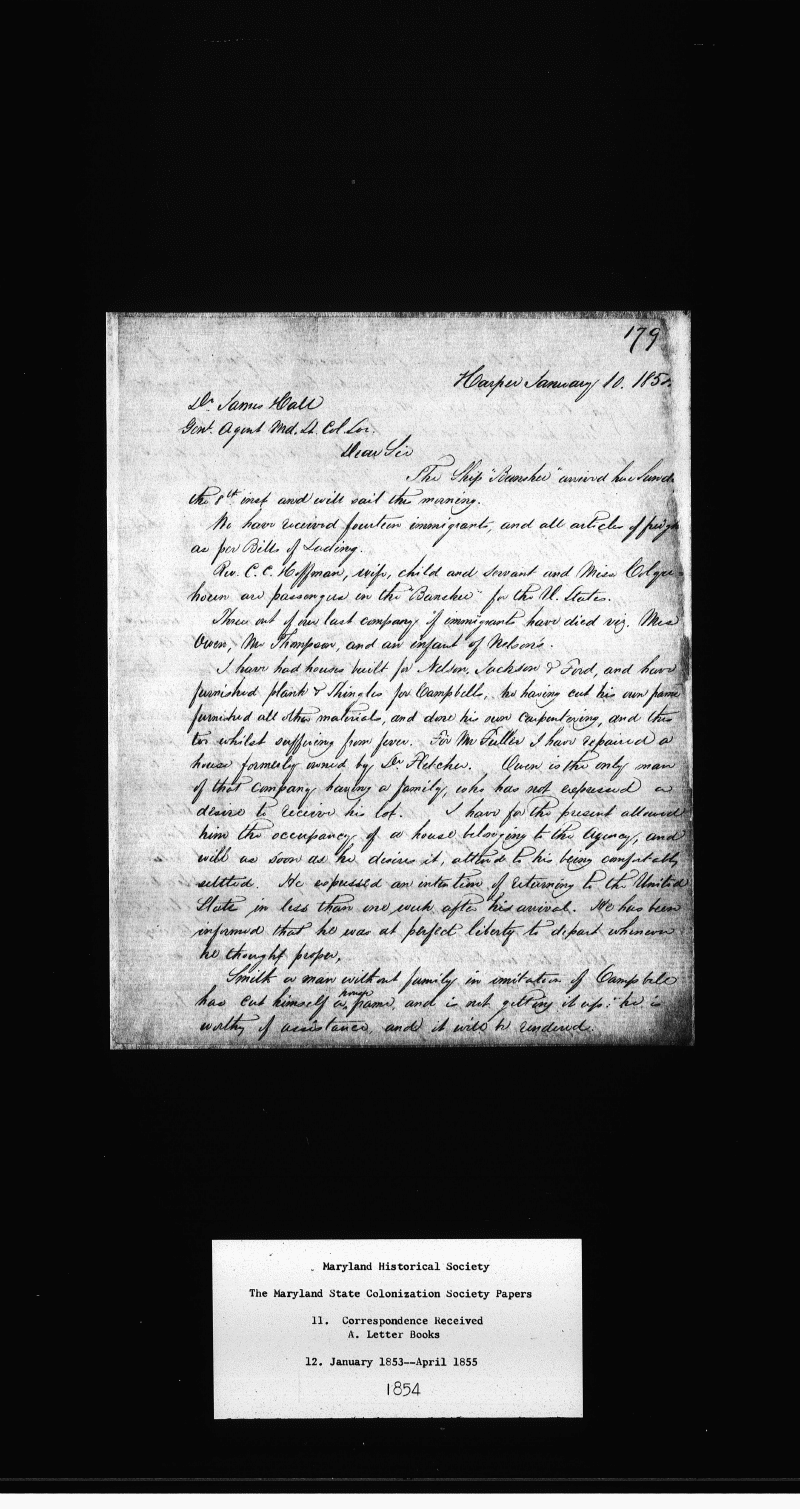 179
Harper January 10. 185
Dr. James Hall
Genl. Agent Md. St. Col. Soc.
Dear Sir
The Ship "Banshee" arrived here
the 8th inst and will sail this morning.
We have received fourteen immigrants, and all articles of freigh
as per Bills of Lading.
Rev. C. C. Hoffman, wife, child and servant and Miss Colqu-
houn are passengers in the "Banshee" for the U. States.
Three out of our last company of immigrants have died viz. Mrs
Owen, Mr Thompson, and an infant of Nelson's.
I have had houses built for Nelson, Jackson & Ford, and have
furnished plank & Shingles for Campbells, he having cut his own frame
furnished all other materials, and done his own carpentering, and this
too whilst suffering from fever. For Mr Fuller I have repaired a
house formerly owned by Dr. Fletcher. Owen is the only man
of that company having a family, who has not expressed a
desire to receive his lot. I have for the present allowed
him the occupancy of a house belonging to the Agency, and
will as soon as he desires it, attend to his being comfortably
settled. He expressed an intention of returning to the United
State in less than one week after his arrival. He has been
informed that he was at perfect liberty to depart whenever
he thought proper.
Smith a man without family in imitation of Campbell
has cut himself a house frame, and is not getting it up; he is
worthy of assistance, and it will be rendered.
Maryland Historical Society
The Maryland State Colonization Society Papers
11. Correspondence Received
A. Letter Books
12. January 1853--April 1855
1854